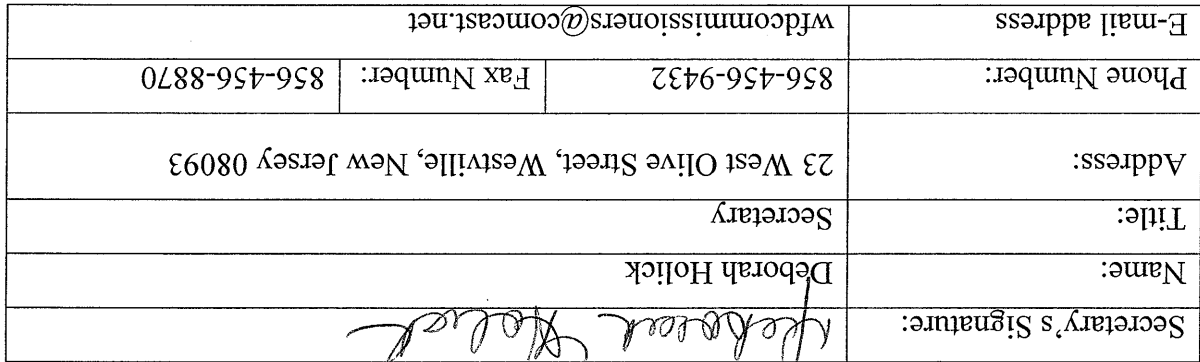 Secretary's Signature: Deborah Holick
Name: Deborah Holick
Title: Secretary
Address: 23 West Olive Street, Westville, New Jersey 08093
Phone Number: 856-456-9432 Fax Number: 856-456-8870
E-mail address wfdcommissioners@comcast.net